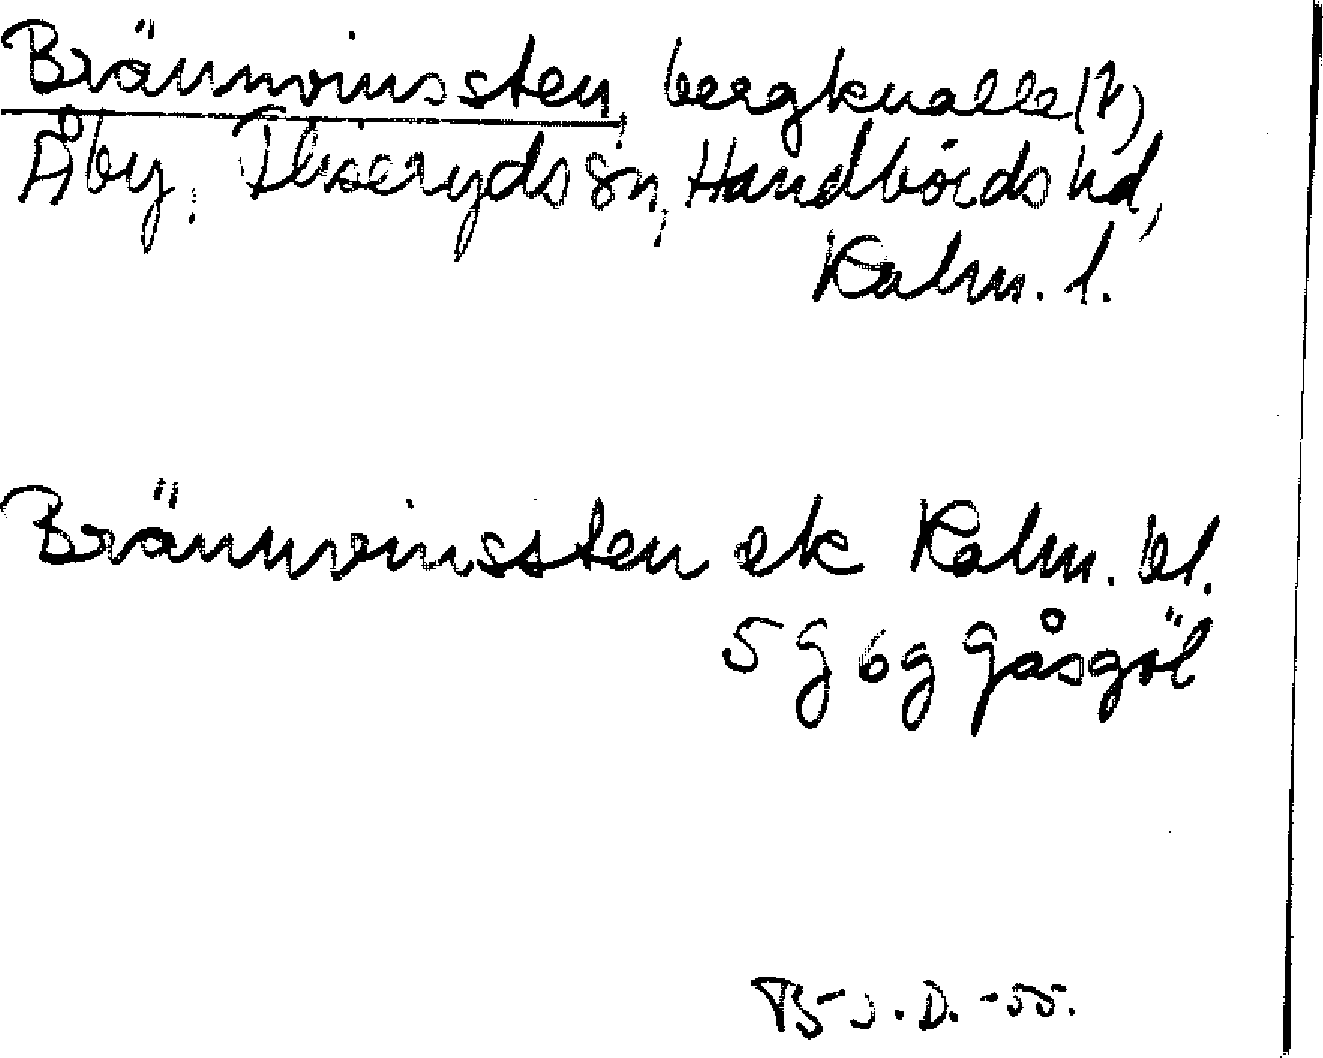 Brännvinssten, bergknalle(?),
Åby, Fliserydssn, Handbörds hd,
Kalm. l.
Brännvinssten ek Kalm. bl.
5 g 6 g Gåsgöl
B-J. D. -55.